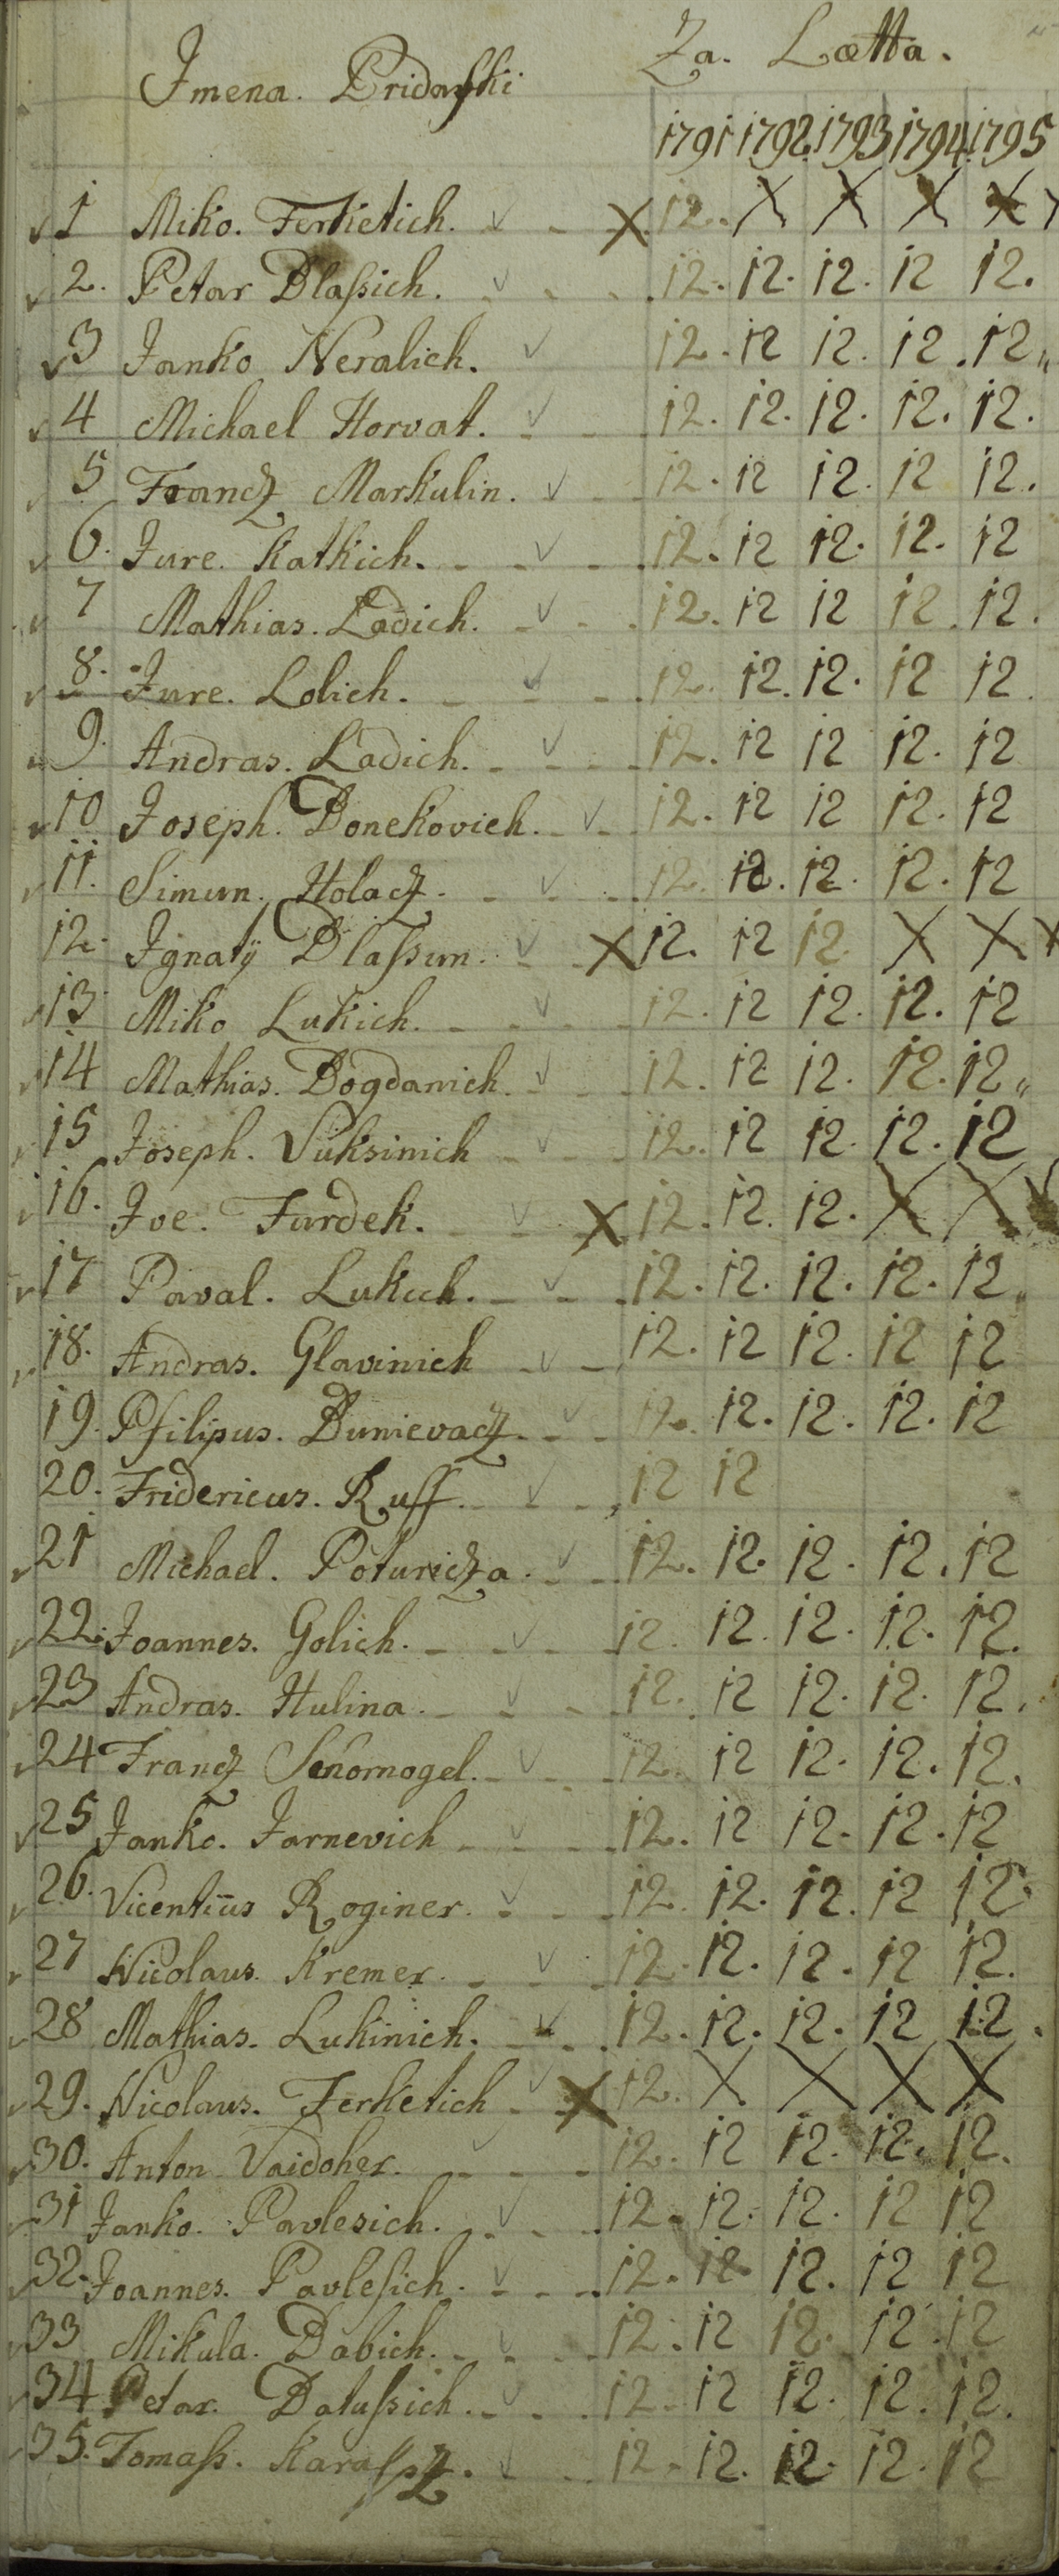 Imena. Pridaßki
Za. Lætta.
1791 1792. 1793 1794 1795
1 Miko. Ferketich. X 12. X X X X
2. Petar Blaßich. 12. 12. 12. 12 12.
3 Janko Neralich. 12. 12 12. 12. 12„
4 Michael Horvat. 12. 12. 12. 12. 12.
5 Francz Markulin. 12. 12 12. 12 12.
6. Jure. Katkich. 12. 12 12. 12. 12
7 Mathias. Ladich. 12. 12 12 12. 12.
8. Jure. Lolich. 12. 12. 12. 12 12.
9. Andras. Ladich. 12. 12 12 12. 12
10 Joseph. Bonekovich. 12. 12 12 12. 12
11. Simun. Holacz. 12. 12. 12. 12. 12
12. Ignatÿ Blaßun. X 12. 12 12. X X X
13. Miko Lukich. 12. 12 12. 12. 12
14 Mathias. Bogdanich. 12. 12 12. 12. 12„
15 Joseph. Vuksinich 12. 12 12. 12. 12
16. Ive. Furdek. X 12. 12. 12. X X
17 Paval. Lukich. 12. 12. 12. 12. 12„
18. Andras. Glavinich 12. 12 12. 12 12
19. Pfilipus. Bunievacz. 12. 12. 12. 12. 12
20. Fridericus. Ruff. 12 12
21 Michael. Poturicza. 12. 12. 12. 12. 12
22. Joannes. Golich. 12. 12. 12. 12. 12.
23 Andras. Hulina. 12. 12 12. 12. 12.
24 Francz 12. 12 12. 12. 12.
25 Janko. Jarnevich 12. 12 12. 12. 12
26. Vicentius Roginer. 12. 12. 12. 12 12.
27 Nicolaus. Kremer. 12. 12. 12. 12 12.
28 Mathias. Lukinich. 12. 12. 12. 12 12.
29. Nicolaus. Ferketich X 12. X X X X
30. Anton Vaidoher. 12. 12 12. 12. 12.
31 Janko. Pavlesich. 12. 12. 12. 12 12
32. Joannes. Pavleſich. 12. 12. 12. 12 12
33 Mikula. Babich. 12. 12 12. 12. 12
34 Petar. Batußich. 12. 12 12. 12. 12.
35. Tomaß. Karaſz. 12. 12. 12. 12. 12